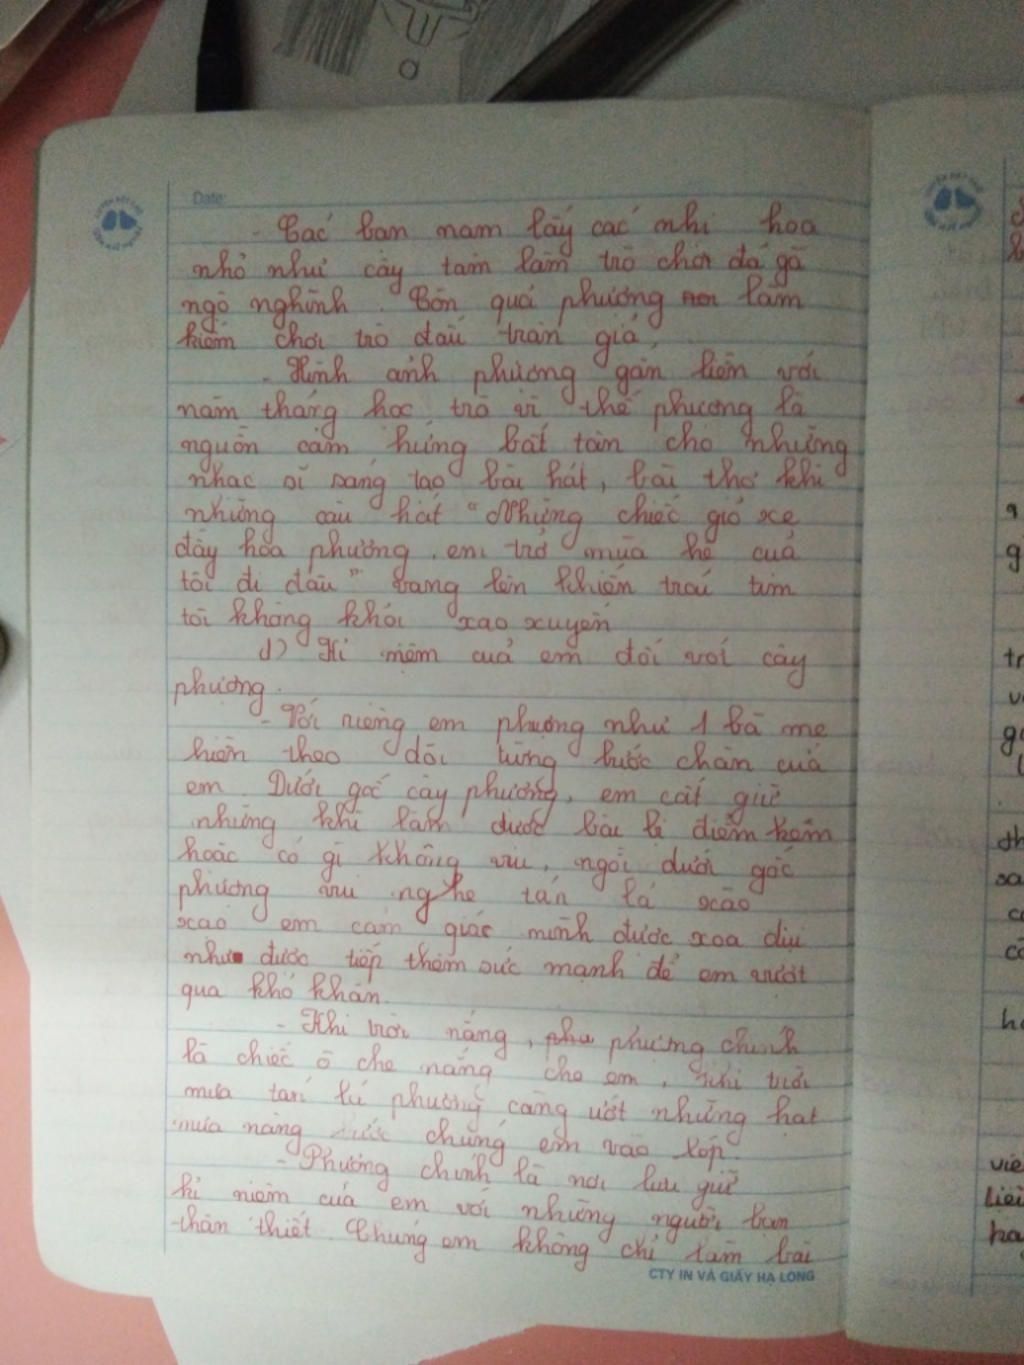 Date:
- Các bạn nam lấy các nhị hoa
nhỏ như cây tăm làm trò chơi đá gà
ngộ nghĩnh. Còn quả phượng làm
kiếm chơi trò đấu trận giả.
- Hình ảnh phượng gắn liền với
năm tháng học trò vì thế phượng là
nguồn cảm hứng bất tận cho những
nhạc sĩ sáng tạo bài hát, bài thơ khi
những câu hát "Những chiếc giỏ xe
đầy hoa phượng, em trở mùa hè của
tôi đi đâu" vang lên khiến trái tim
tôi không khỏi xao xuyến
d) Kỉ niệm của em đối với cây
phượng.
- Với riêng em phượng như 1 bà mẹ
hiền theo dõi từng bước chân của
em. Dưới gốc cây phượng, em cất giữ
những khi làm được bài bị điểm kém
hoặc có gì không vui, ngồi dưới gốc
phượng vui nghe tán lá xào
xạo em cảm giác mình được xoa dịu
như được tiếp thêm sức mạnh để em vượt
qua khó khăn.
- Khi trời nắng, phượng chính
là chiếc ô che nắng cho em, khi trời
mưa tán lá phượng càng ướt những hạt
mưa nặng chúng em vào lớp.
- Phượng chính là nơi lưu giữ
kỉ niệm của em với những người bạn
thân thiết. Chúng em không chỉ làm bài
CTY IN VÀ GIẤY HẠ LONG